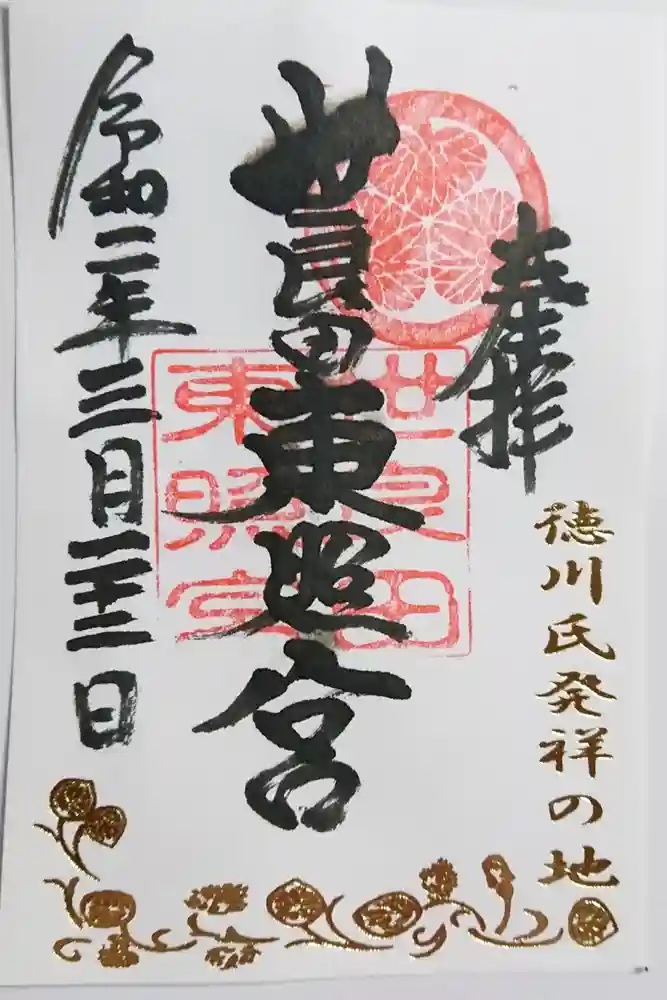 奉拝
徳川氏発祥の地
世良田東照宮
世良田
東照宮
令和二年三月二十二日